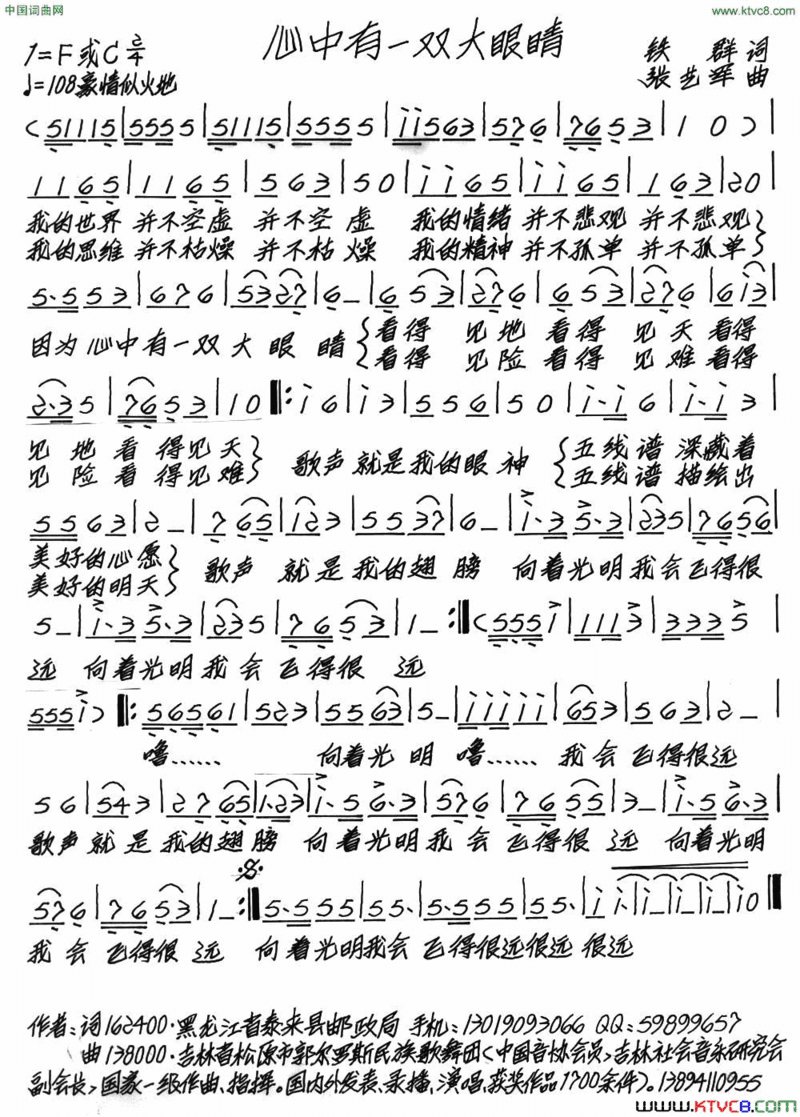 中国词曲网
www.ktvc8.com
心中有一双大眼睛
1=F或C 2/4
铁群 词
♩=108豪情似火地
张艺军 曲
(51115|5555|51115|5555|ii563|576|7653|10)|
1165|1165|563|50|ii65|ii65|163|20|
我的世界 并不空虚 并不空虚 我的情绪 并不悲观 并不悲观
我的思维 并不枯燥 并不枯燥 我的精神 并不孤单 并不孤单
5·553|676|5327|6-|6535|276|
因为心中有一双大眼睛 看得 见地 看得 见天 看得
看得 见险 看得 见难 看得
2·35|7653|10‖:i6|i3|556|50|i·i6|i·i3|
见地 看得见天 歌声就是我的眼神 五线谱 深藏着
见险 看得见难 五线谱 描绘出
5563|2-|765|123|5537|6-|i·35·3|235|7656|
美好的心愿 歌声 就是我的翅膀 向着光明我会飞得很
美好的明天
5-|i·35·3|235|7653|1-:‖(555i|1113|3335|
远 向着光明我会飞得很 远
555i)‖:56561|523|5563|5-|iiiii|653|563|2-|
噜…… 向着光明 噜…… 我会飞得很远
56|543|2765|1·23|i·56·3|576|7655|3-|i·56·3|
歌声就是我的翅膀 向着光明我会飞得很 远 向着光明
576|7653|1-:‖5·555|55·|5·555|55·|i·i|i-|i-|i-|i0‖
我会飞得很 远 向着光明我会飞得很远很远 很远
作者:词162400·黑龙江省泰来县邮政局 手机:13019093066 QQ:59899657
曲138000·吉林省松原市郭尔罗斯民族歌舞团<中国音协会员>吉林社会音乐研究会
副会长>国家一级作曲、指挥。国内外发表、录播、演唱、获奖作品1700余件)。13894110955
www.KTVC8.com